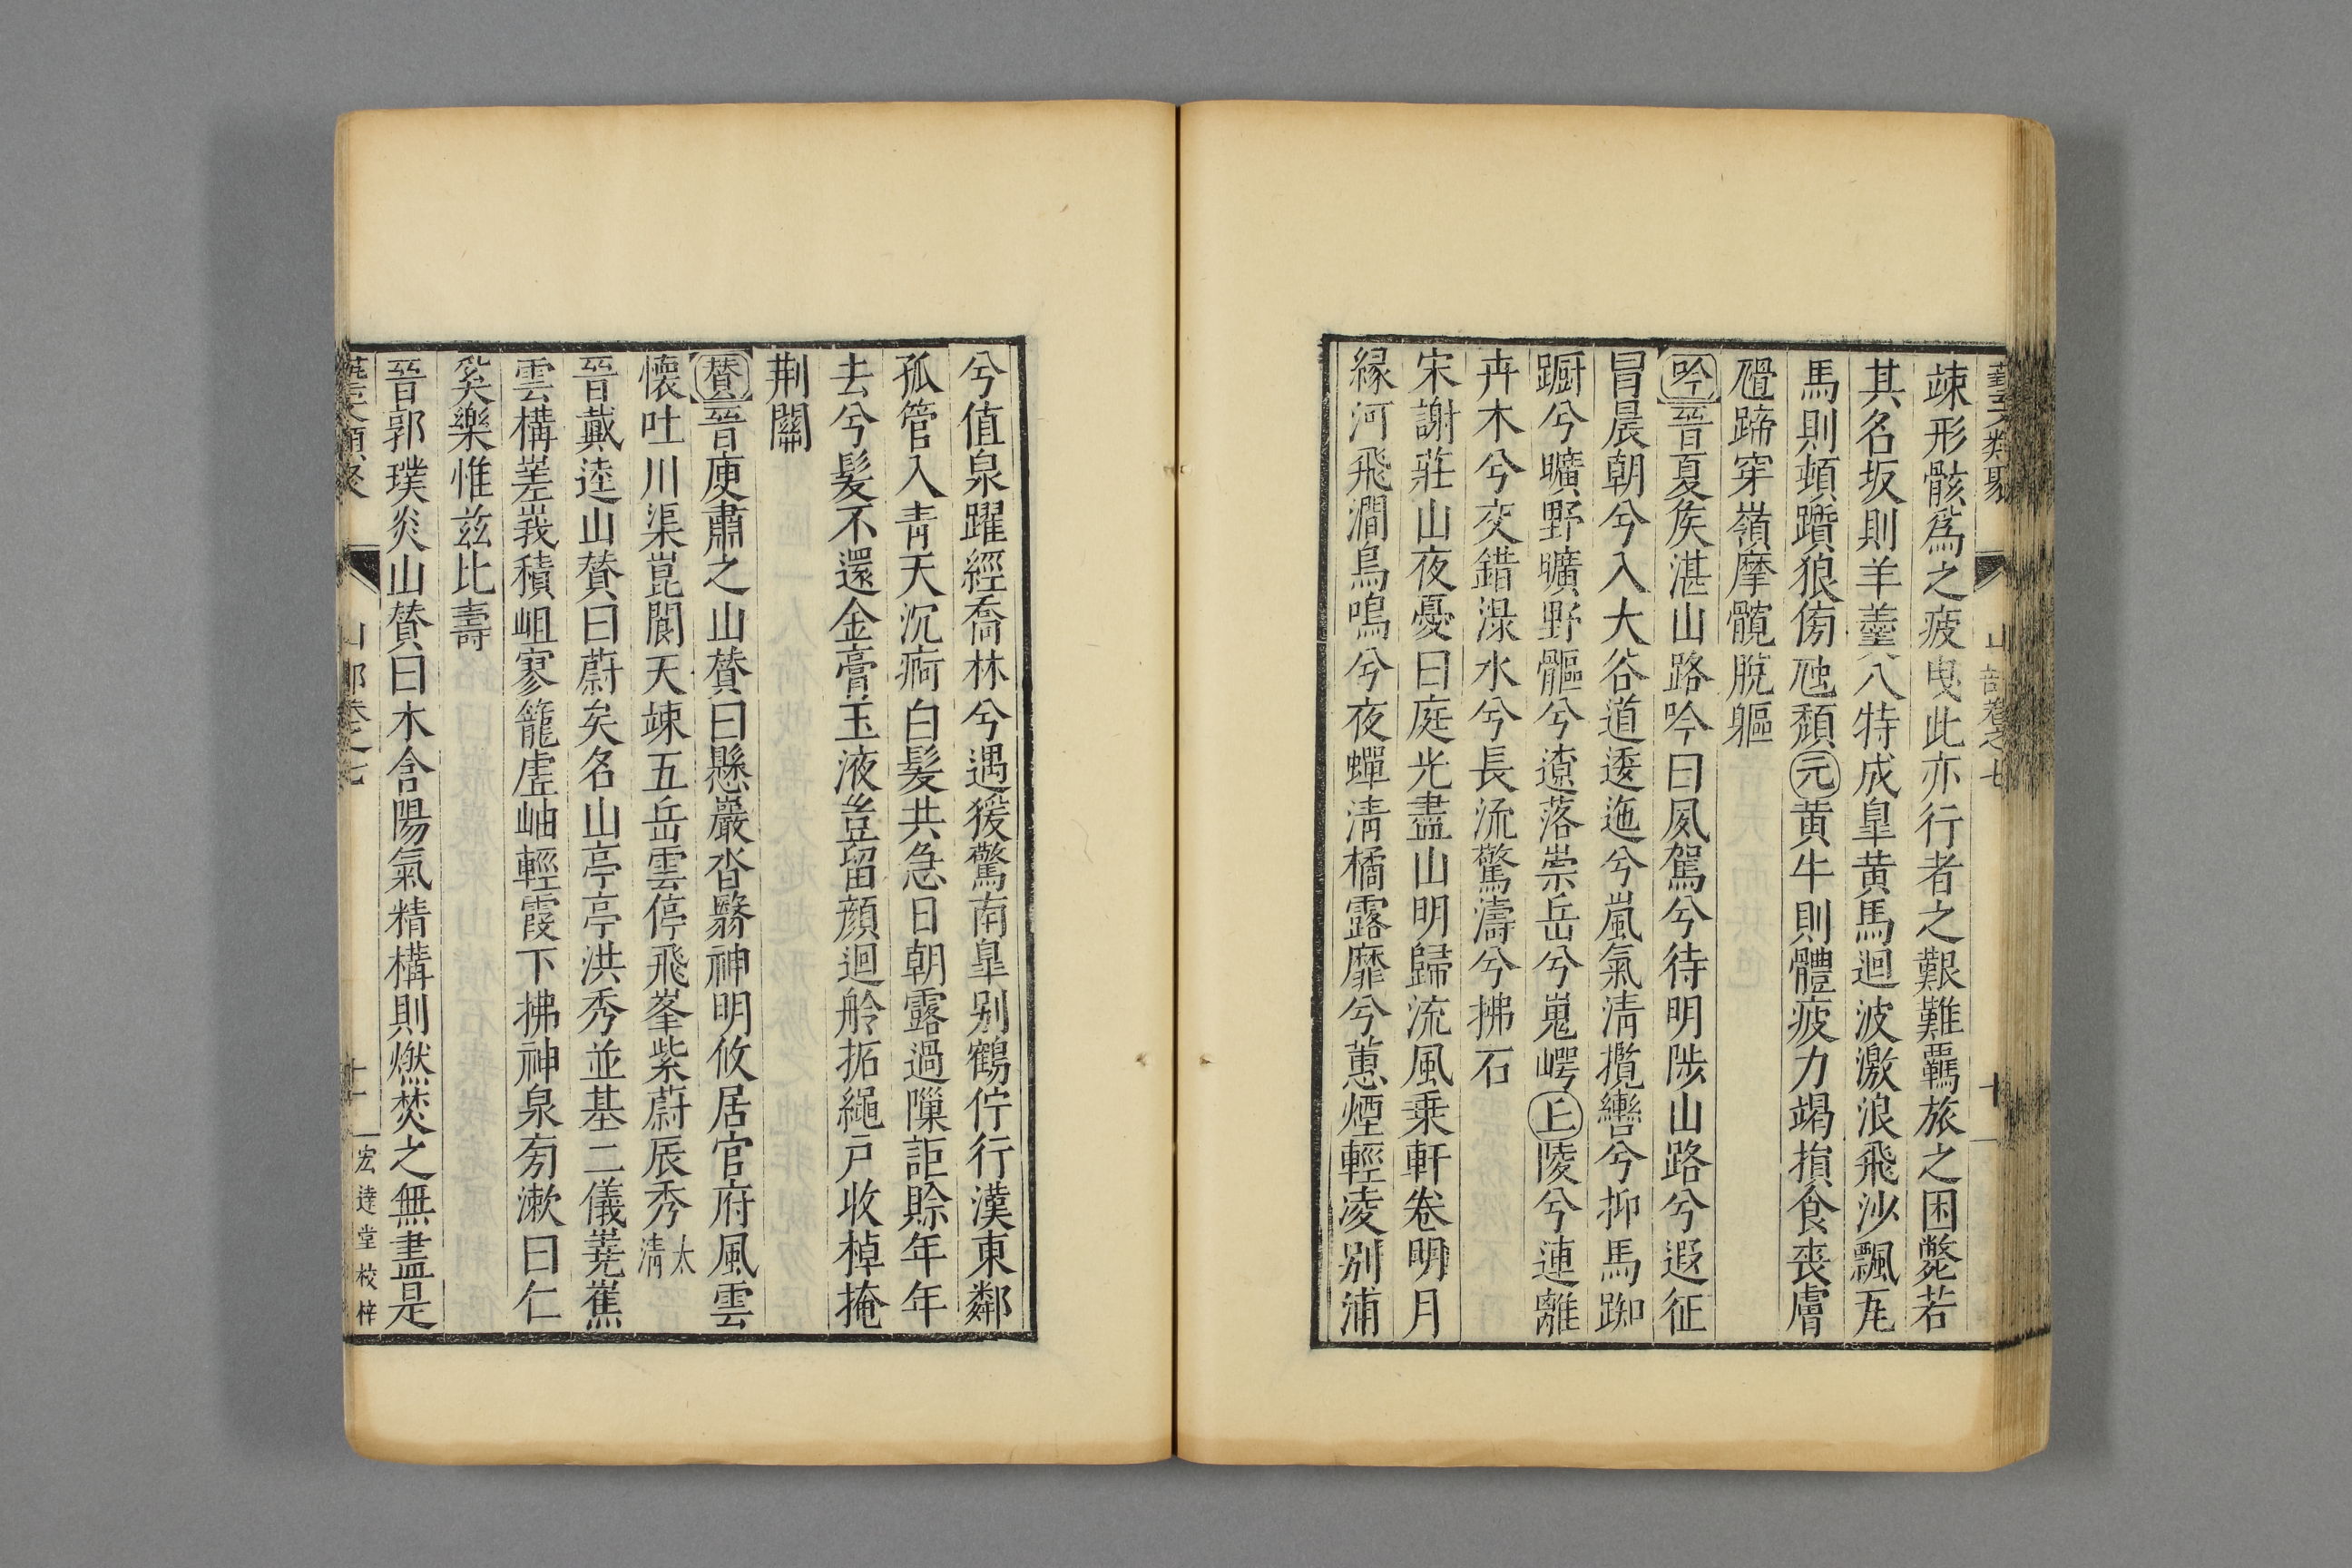 藝文類聚 山部卷之七 十
竦形骸爲之疲曳此亦行者之艱難羇旅之困斃若
其名坂則羊羹八特成臯黄馬迴波激浪飛沙飄瓦
馬則頓躓狼傍虺頽元黄牛則體疲力竭損食喪膚
蹄穿嶺摩髖脫軀
吟晉夏侯湛山路吟曰夙駕兮待明陟山路兮遐征
冒晨朝兮入大谷道逶迤兮嵐氣清攬轡兮抑馬踟
蹰兮曠野曠野䡾兮遼落崇岳兮嵬崿丘陵兮連離
卉木兮交錯渌水兮長流驚濤兮拂石
宋謝莊山夜憂曰庭光盡山明歸流風乗軒卷明月
緣河飛澗鳥鳴兮夜蟬清橘露靡兮蕙煙輕凌别浦
兮值泉躍經喬林兮遇猨驚南臯别鶴佇行漢東鄰
孤管入青天沉痾白髮共急日朝露過隟詎賒年年
去兮髮不還金膏玉液豈留顔迴舲拓繩戶收棹掩
荆關
賛晉庾肅之山賛曰懸巖沓嶭神明攸居官府風雲
懷吐川渠崑閬天竦五岳雲停飛峯紫蔚辰秀太清
晉戴逵山賛曰蔚矣名山亭亭洪秀並基二儀嶤嶣
雲構嵳峩積岨寥籠虛岫輕霞下拂神泉旁漱曰仁
矣樂惟茲比壽
晉郭璞炎山賛曰木含陽氣精構則燃焚之無盡是
藝文類聚 山部卷之七 十一 宏達堂校梓